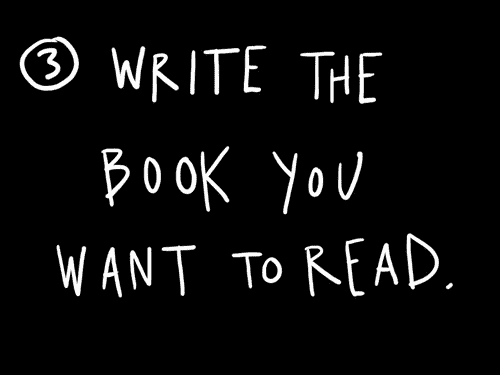 3 WRITE THE
BOOK YOU
WANT TO READ.